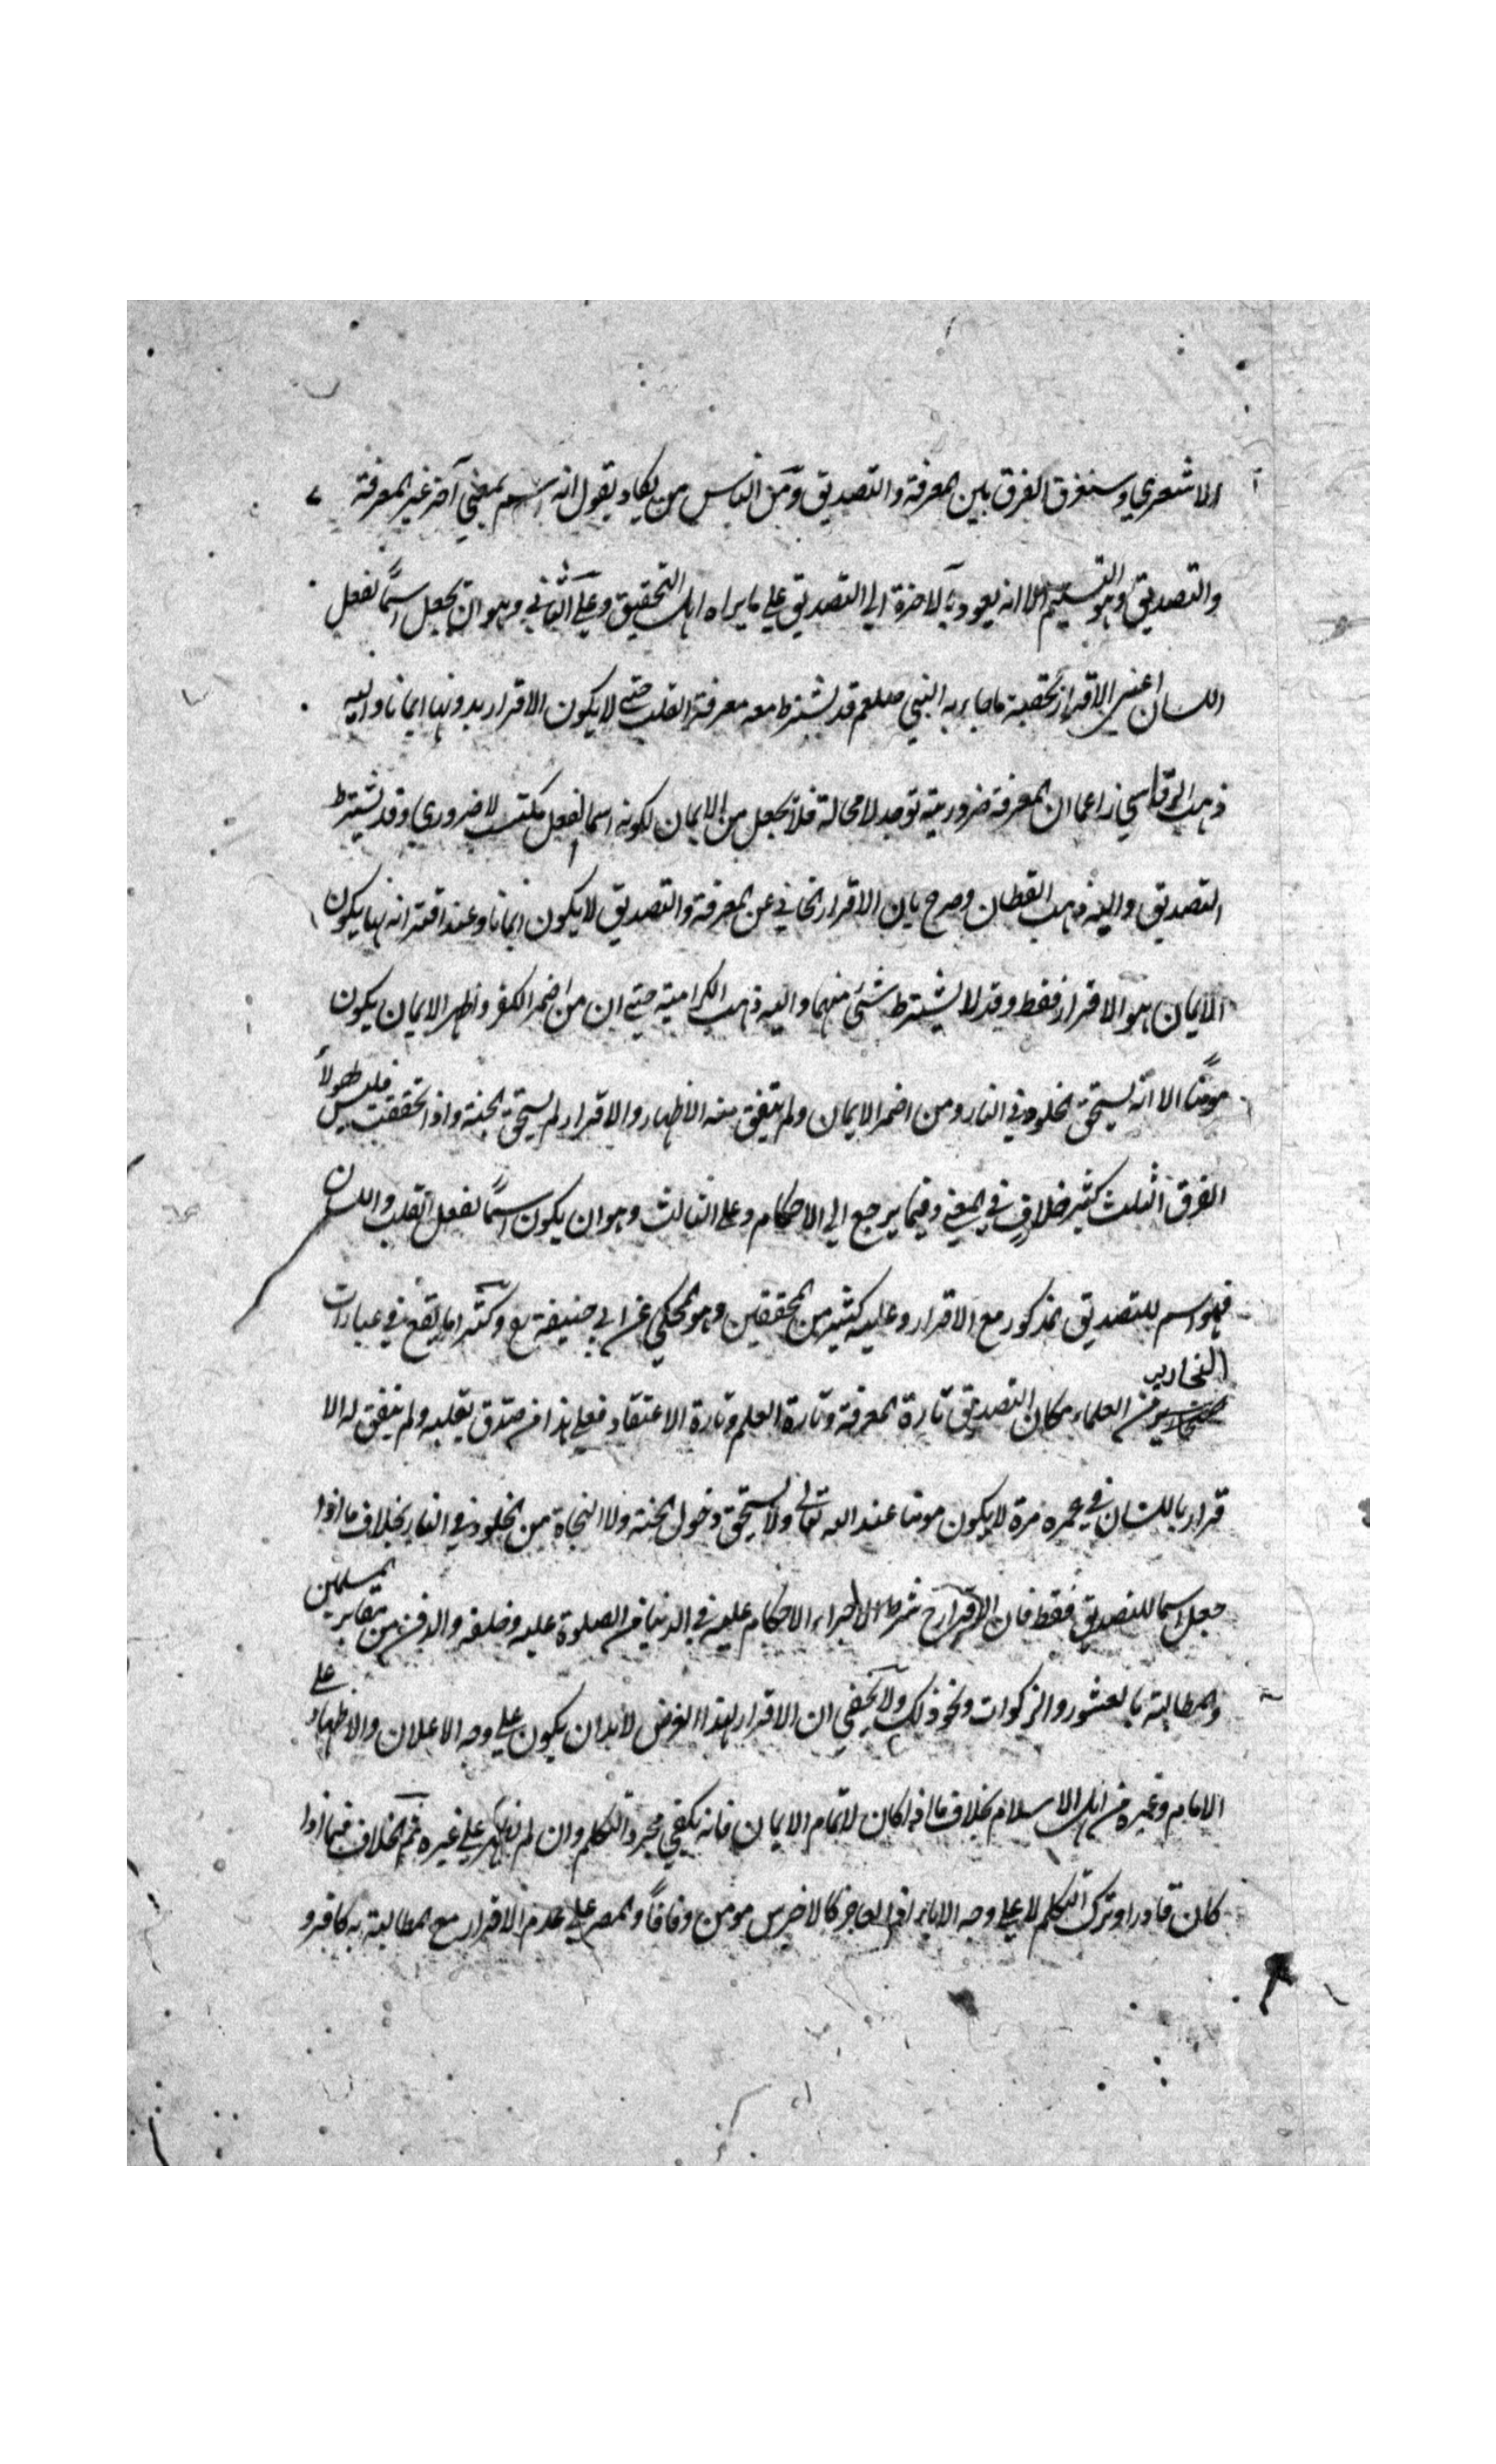 الاشعري وستعرف الفرق بين المعرفة والتصديق ومن الناس من يكاد يقول انه اسم لمعني آخر غير المعرفة
والتصديق وهو التسليم الا انه يعود بالآخرة الي التصديق علي ما يراه اهل التحقيق وعلي الثاني وهو ان يجعل اسمًا لفعل
اللسان اعني الاقرار بحقية ما جاء به النبي صلعم قد يشترط معه معرفة القلب حتي لا يكون الاقرار بدونها ايمانا واليه
ذهب الرقاشي زاعما ان المعرفة ضرورية توجد لا محالة فلا يجعل من الايمان لكونه اسما لفعل مكتسب لا ضروري وقد يشترط
التصديق واليه ذهب القطان وصرح بان الاقرار الخالي عن المعرفة والتصديق لا يكون ايمانا وعند اقترانه بهما يكون
الايمان هو الاقرار فقط وقد لا يشترط شئ منهما واليه ذهب الكرامية حتي ان من اضمر الكفر واظهر الايمان يكون
مومنًا الا انه يستحق الخلود في النار ومن اضمر الايمان ولم يتفق منه الاظهار والاقرار لم يستحق الجنة واذا تحققت فليس لهولاء
الفرق الثلث كثير خلاف في المعني وفيما يرجع الي الاحكام وعلي الثالث وهو ان يكون اسمًا لفعل القلب واللسان
فهو اسم للتصديق المذكور مع الاقرار وعليه كثير من المحققين وهو المحكي عن ابي حنيفة رح وكثيرا ما يقع في عبارات
النحارير من العلماء مكان التصديق تارة المعرفة وتارة العلم وتارة الاعتقاد فعلي هذا من صدق بقلبه ولم يتفق له الا
قرار باللسان في عمره مرة لا يكون مومنا عند الله تعالي ولا يستحق دخول الجنة ولا النجاة من الخلود في النار بخلاف ما اذا
جعل اسما للتصديق فقط فان الاقرار ح شرط لاجراء الاحكام عليه في الدنيا من الصلوة عليه وخلفه والدفن من مقابر المسلمين
والمطالبة بالعشور والزكوات ونحو ذلك ولا يخفي ان الاقرار لهذا الغرض لا بد ان يكون علي وجه الاعلان والاظهار علي
الامام وغيره من اهل الاسلام بخلاف ما اذا كان لاتمام الايمان فانه يكفي مجرد التكلم وان لم يظهر علي غيره ثم الخلاف فيما اذا
كان قادرا وترك التكلم لا علي وجه الاباء اذ العاجز كالاخرس مومن وفاقًا والمصر علي عدم الاقرار مع المطالبة به كافر و